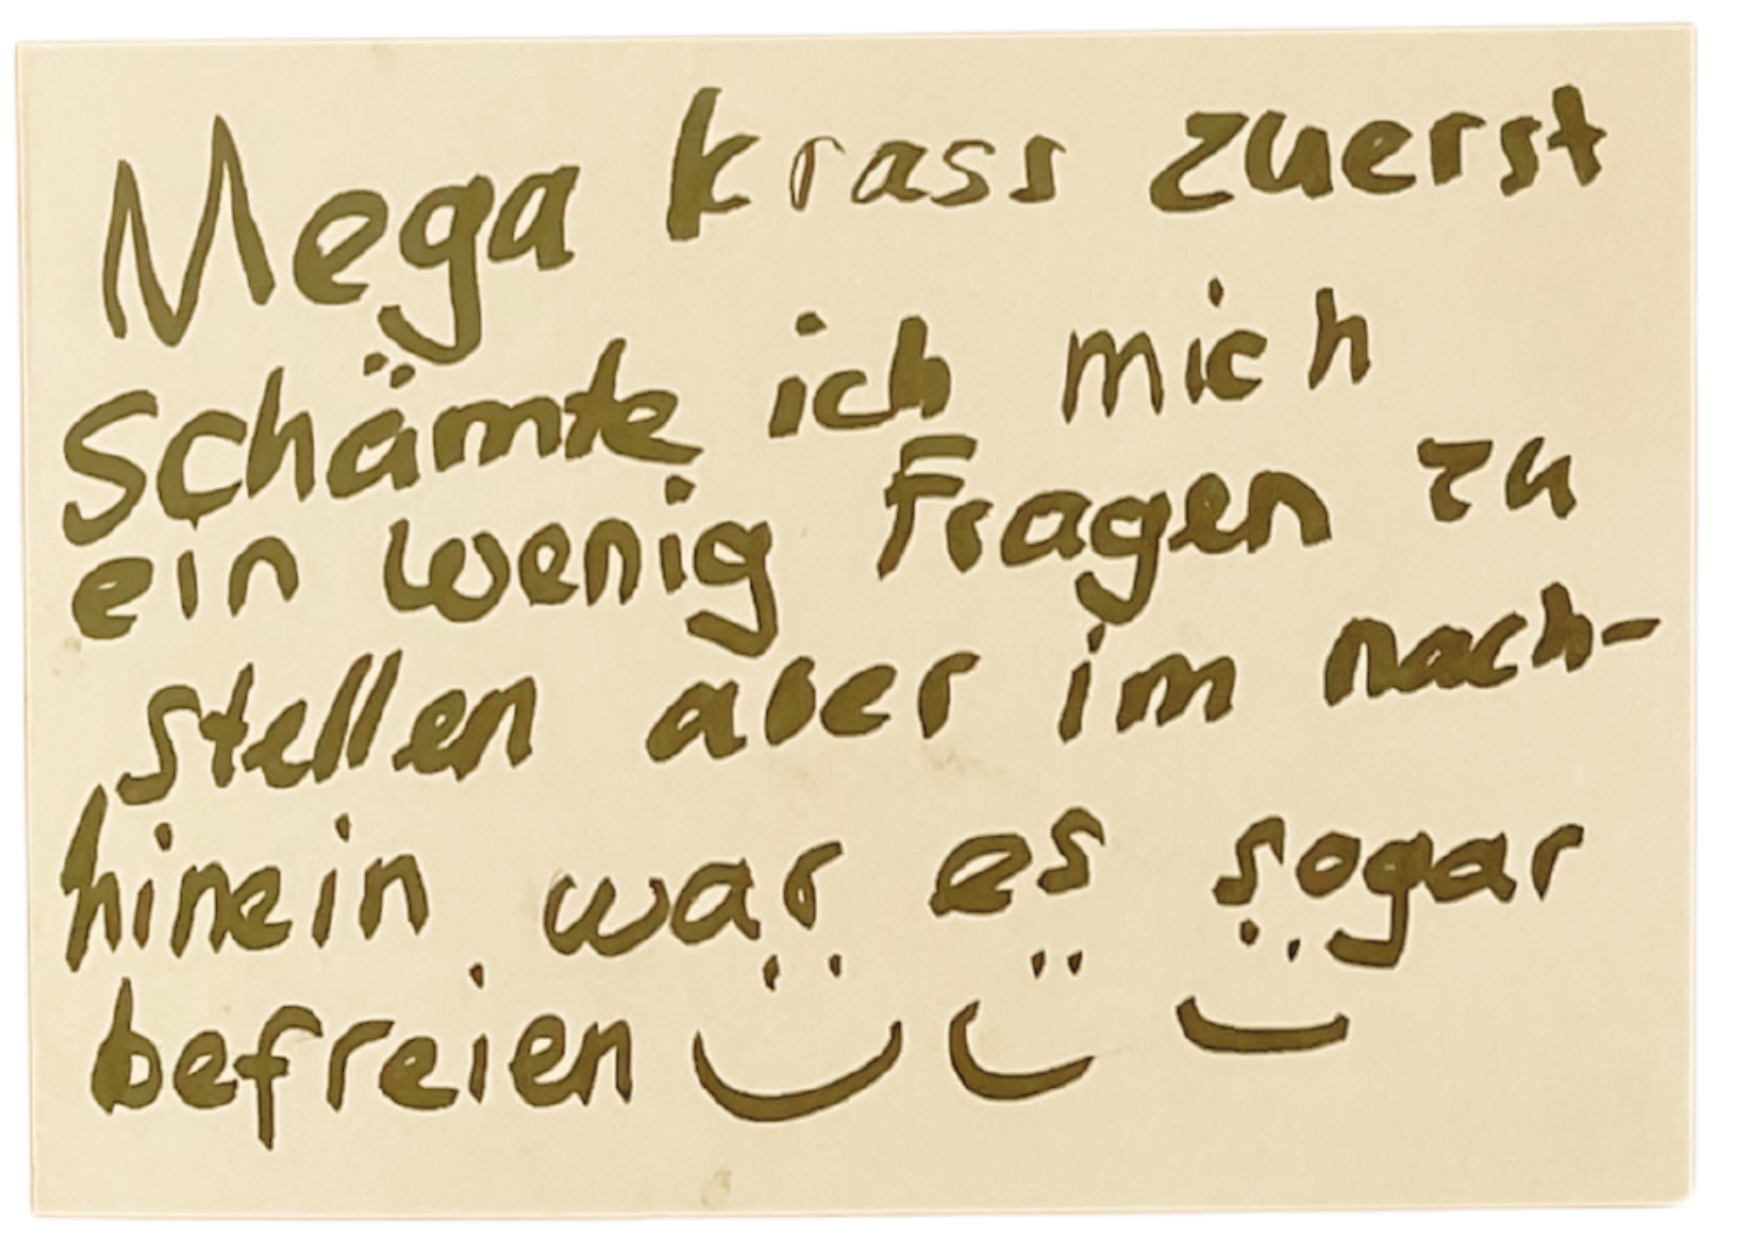 Mega krass zuerst
schämte ich mich
ein wenig Fragen zu
stellen aber im nach-
hinein war es sogar
befreien